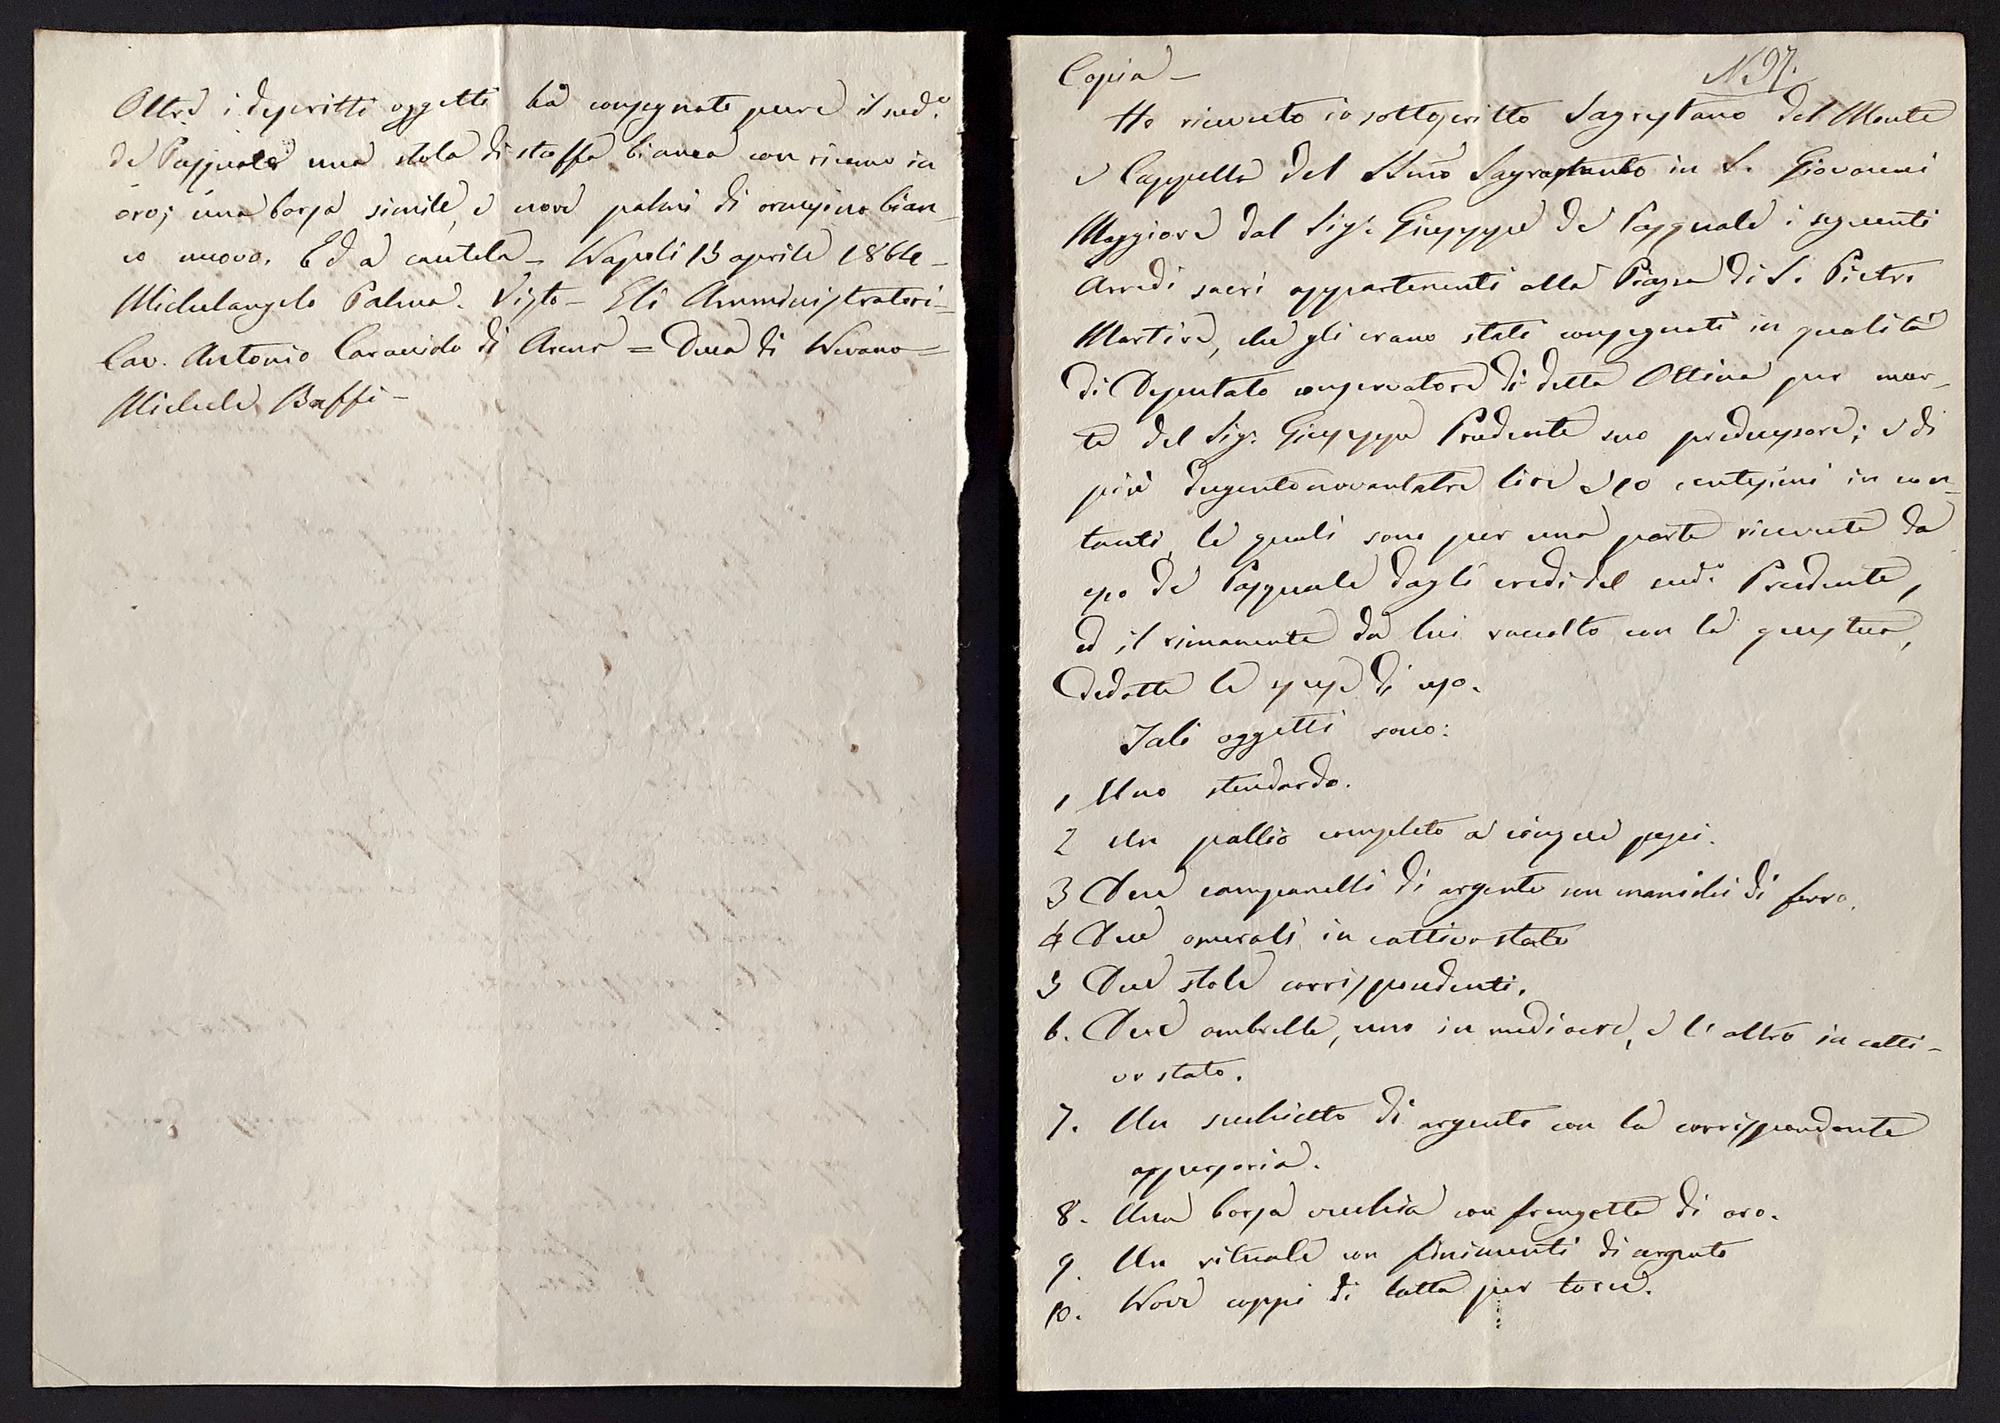 Copia –
N. 97.
Ho ricevuto io sottoscritto Sagrestano del Monte
e Cappella del SSmo Sagramento in S. Giovanni
Maggiore dal Sig.r Giuseppe de Pasquale i seguenti
Arredi sacri appartenenti alla Piazza di S. Pietro
Martire, che gli erano stati consegnati in qualità
di Deputato conservatore di detta Ottina per mor-
te del Sig.r Giuseppe Prudente suo predecessore; e di
più dugentonovantatre lire e 10 centesimi in con-
tanti, le quali sono per una parte ricevute da
esso de Pasquale dagli eredi del sud.o Prudente,
ed il rimanente da lui raccolto con la questua,
dedotte le spese di uso.
Tali oggetti sono:
1 Uno stendardo.
2 Un pallio completo a cinque pezzi.
3 Due campanelli di argento con manichi di ferro.
4 Due omerali in cattivo stato
5 Due stole corrispondenti.
6. Due ombrelle, uno in mediocre, e l'altro in catti-
vo stato.
7. Un secchietto di argento con la corrispondente
aspersoria.
8. Una borsa vecchia con frangetta di oro.
9. Un rituale con finimenti di argento
10. Nove coppi di latta per torce.
Oltre i descritti oggetti ha consegnato pure il sud.o
de Pasquale una stola di stoffa bianca con ricamo in
oro; una borsa simile, e nove palmi di ormesino bian-
co nuovo. Ed a cautela – Napoli 15 aprile 1864 –
Michelangelo Palma. Visto – Gli Amministratori –
Cav. Antonio Caracciolo di Arena = Duca di Nevano =
Michele Baffi –